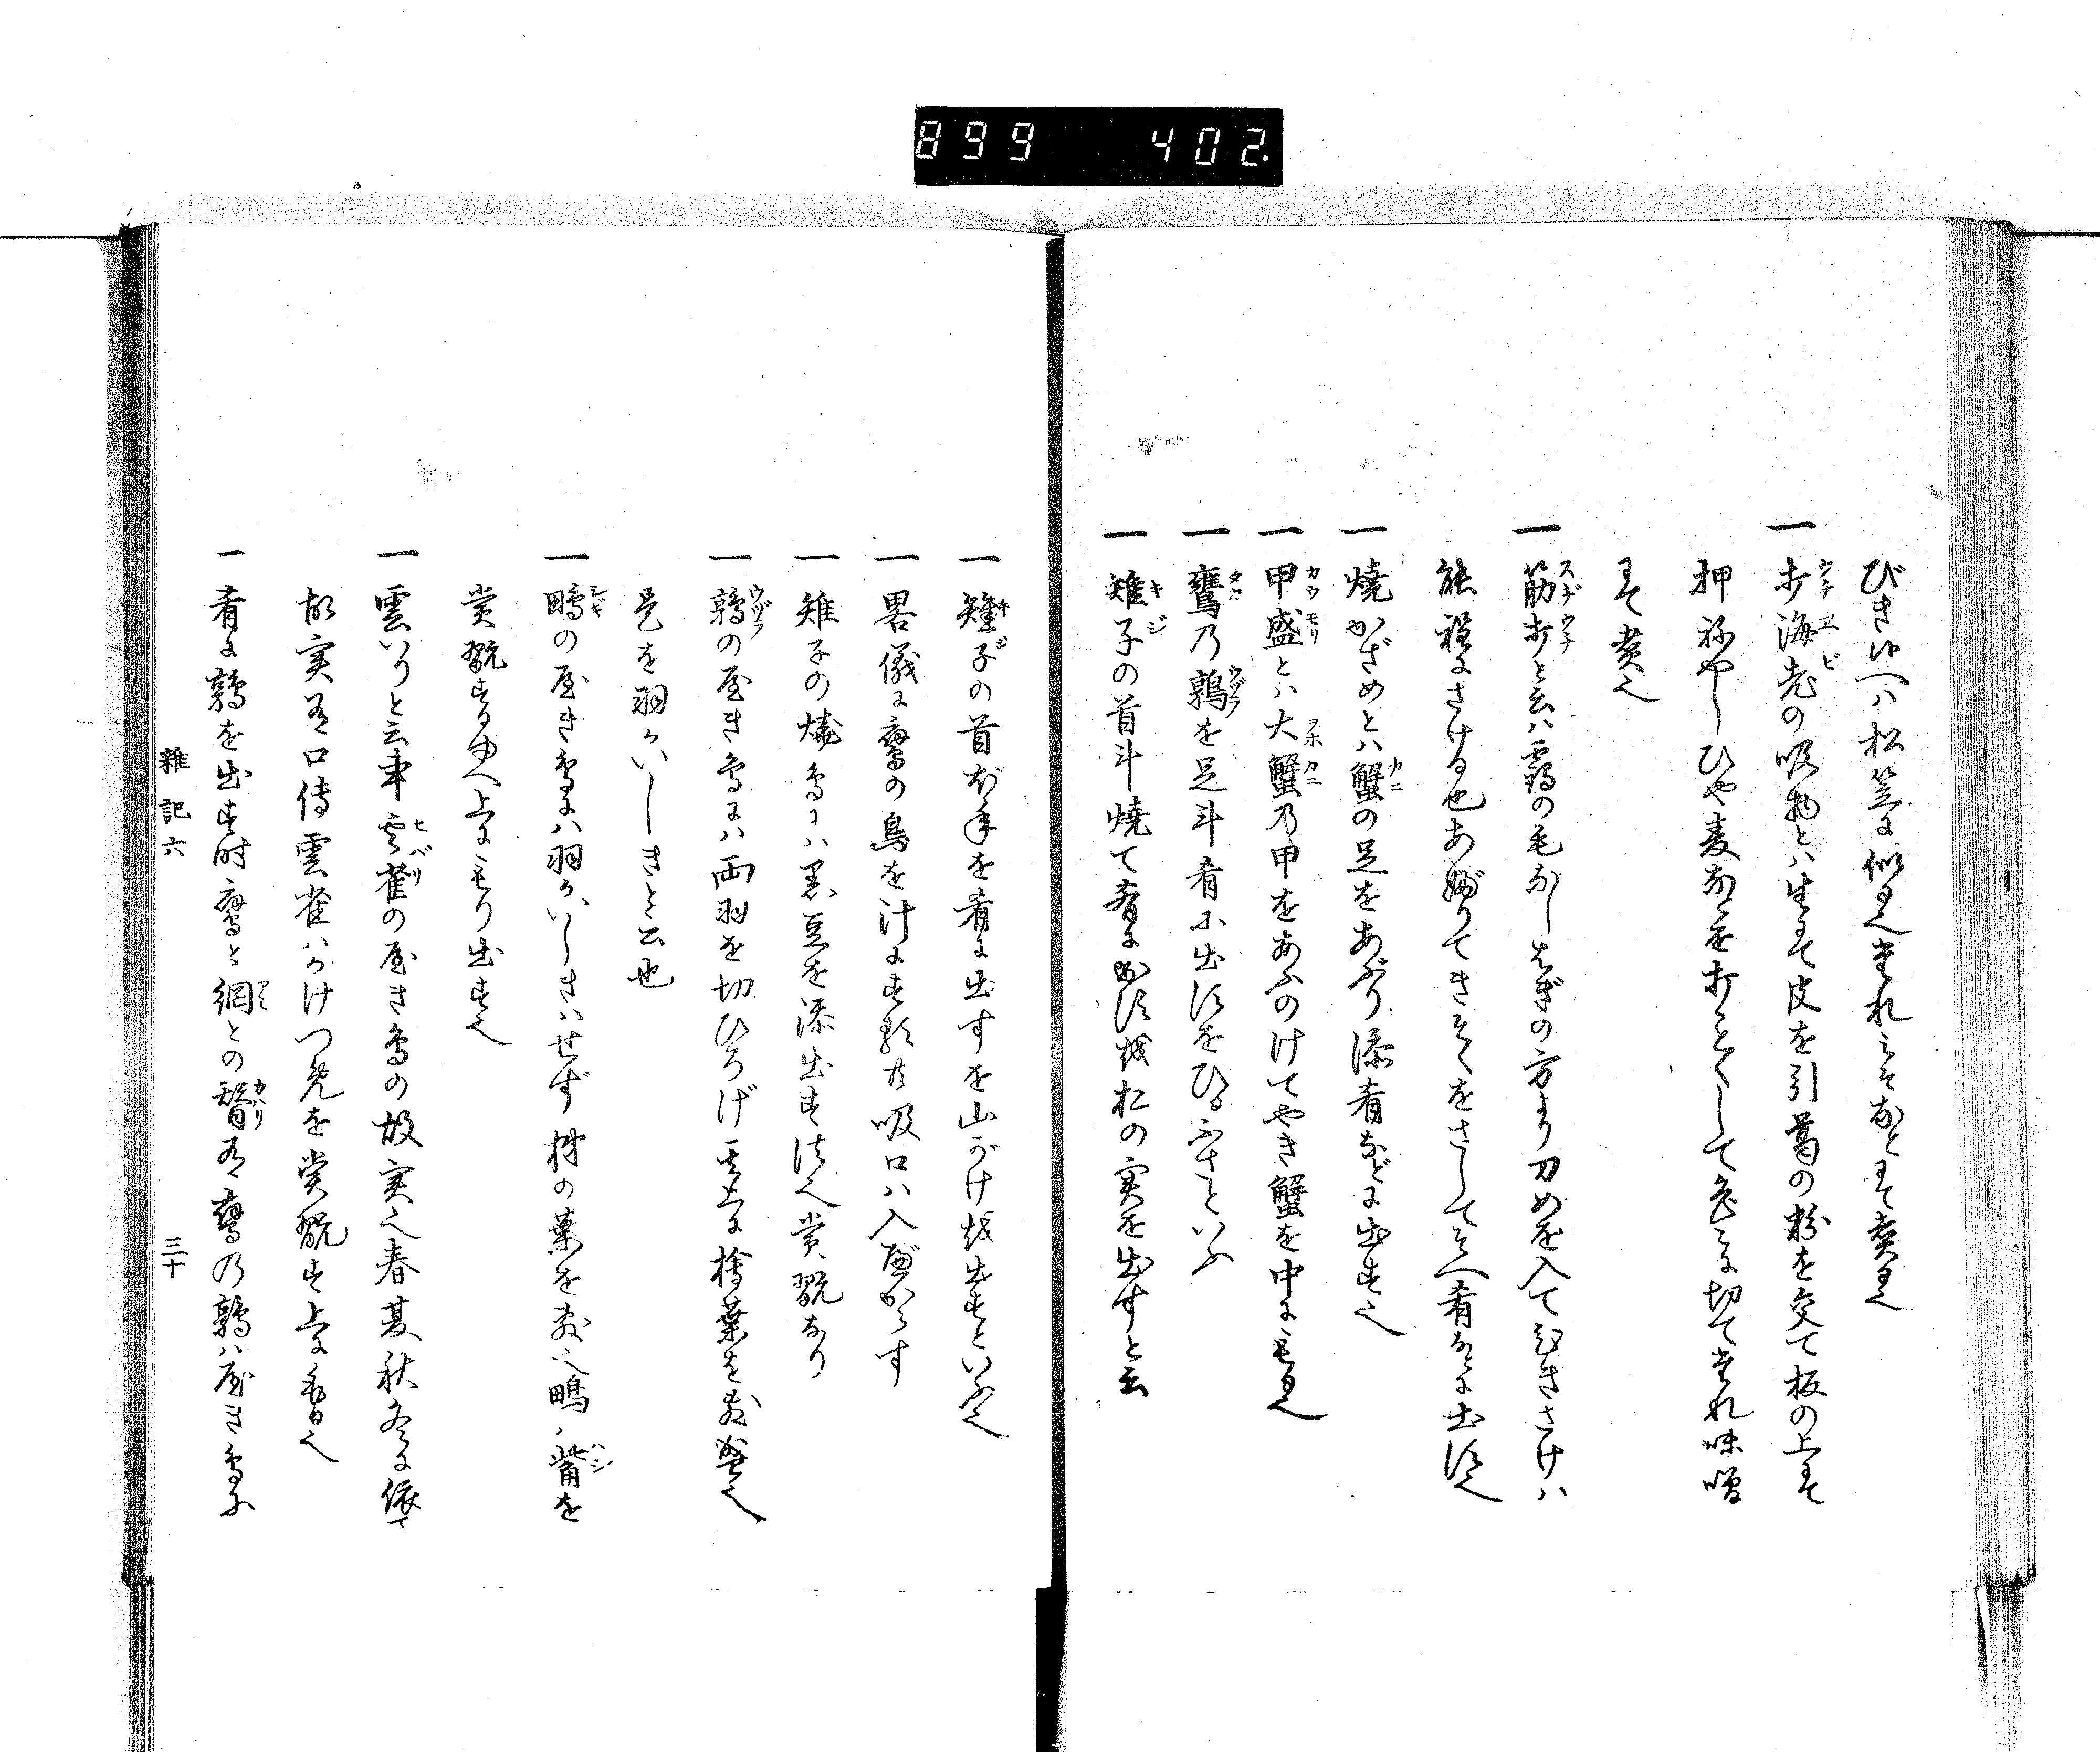 899 402
びき候へハ松笠に似る也たれみそなとにて煮る也
一打海老の吸物とハ生にて皮を引葛の粉を交て板の上にて
押祢やしひや麦などを打ことくして色々に切てたれ味噌
にて煮也
一筋打と云ハ靏の毛なしはぎの方より刀めを入てむきさけハ
能程にさける也あぶりてきそくをさしてそへ肴などに出須也
一焼がざめとハ蟹の足をあぶり添肴などに出す也
一甲盛とハ大蟹乃甲をあふのけてやき蟹を中にもる也
一鷹乃鶉を足斗肴に出須をひるふさといふ
一雉子の首斗焼て肴に出須时松の実を出すと云
一雉子の首於手を肴に出すを山かけ时出すといふ也
一畧儀に鷹の鳥を汁にす類共吸口ハ入べからす
一雉子の焼鳥にハ黒豆を添出す須也賞翫なり
一鶉の屋き鳥にハ両羽を切ひろげ其上に檜葉を敷盛也
是を羽かいしきと云也
一鴫の屋き鳥にハ羽かいしきハせず柿の葉を敷也鴫ノ觜を
賞翫するゆへ上にもり出す也
一雲いりと云事雲雀の屋き鳥の故実也春夏秋冬に依て
故実有口傳雲雀ハかけつめを賞翫す上に置也
一肴に鶉を出す时鷹と網との替有鷹乃鶉ハ屋き鳥に
雜記六 三十